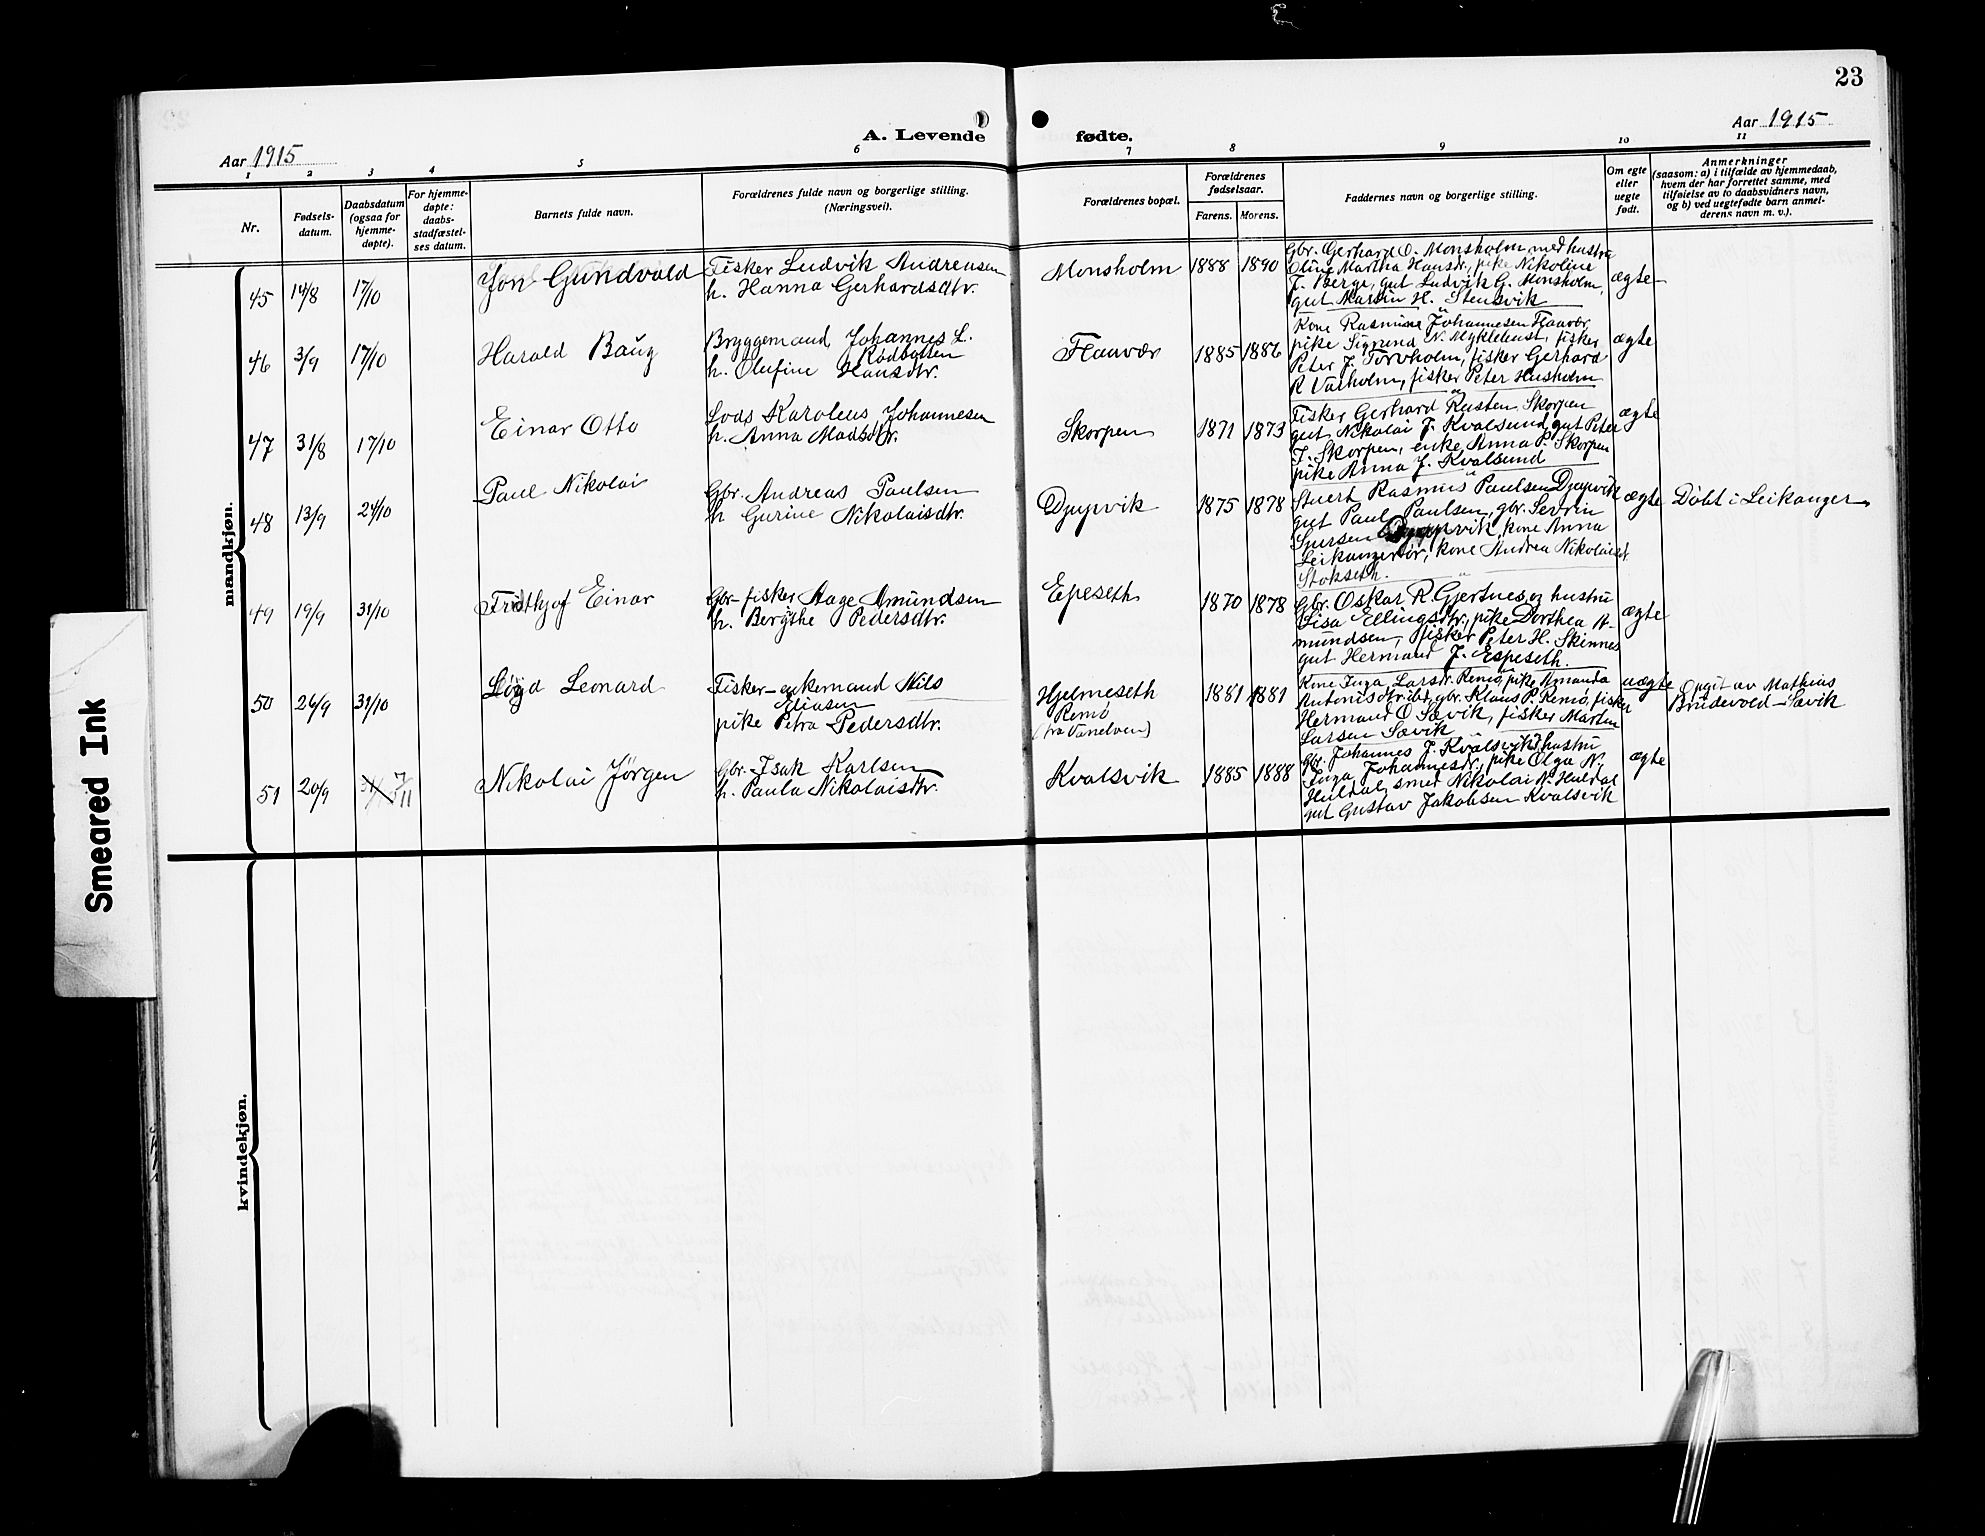 23
A. Levende fødte.
Aar 1915
Aar 1915
1 2 3 4 5 6 7 8 9 10 11
Nr.
Fødsels-
datum.
Daabsdatum
(ogsaa for
hjemme-
døpte).
For hjemme-
døpte:
daabs-
stadfæstel-
ses datum.
Barnets fulde navn.
Forældrenes fulde navn og borgerlige stilling.
(Næringsvei).
Forældrenes bopæl.
Forældrenes
fødselsaar.
Farens. Morens.
Faddernes navn og borgerlige stilling.
Om egte
eller
uegte
født.
Anmerkninger
(saasom: a) i tilfælde av hjemmedaab,
hvem der har forrettet samme, med
tilføielse av to daabsvidners navn,
og b) ved uegtefødte barn anmel-
derens navn m. v.).
mandkjøn.
45 14/8 17/10 Jon Gundvald
Fisker Ludvik Andreasen
h. Hanna Gerhardsdtr.
Monsholm 1888 1890
Gbr. Gerhard O. Monsholm med hustru
Oline Martha Hansdtr., pike Nikoline
J. Berge, gut Ludvik G. Monsholm,
gut Martin H. Stensvik
ægte
46 3/9 17/10 Harald Baug
Bryggemand Johannes L.
Rødbotten
h. Olufine Hansdtr.
Flaavær 1885 1886
Kone Rasmine Johannesen Flaavær
pike Sigrund N. Myklebust, fisker
Peter J. Torvholm, fisker Gerhard
R Varholm, fisker Peter Husholm
ægte
47 31/8 17/10 Einar Otto
Lods Karoleus Johannesen
h. Anna Madsdtr.
Skorpen 1871 1873
Fisker Gerhard Rusten Skorpen
gut Nikolai J. Kvalsund, gut Peter
J. Skorpen, enke Anna P. Skorpen
pike Anna J. Kvalsund
ægte
48 13/9 24/10 Paul Nikolai
Gbr. Andreas Paulsen
h Gurine Nikolaisdtr.
Djupvik 1875 1878
Stuert Rasmus Paulsen Djupvik
gut Paul Paulsen, gbr. Sevrin
Sjursen Djupvik, kone Anna
Leikangerdør, kone Andrea Nikolaisd.
Stokseth.
ægte
Døbt i Leikanger
49 19/9 31/10 Fridthjof Einar
Gbr-fisker Aage Amundsen
h. Bergthe Pedersdtr.
Epeseth 1870 1878
Gbr. Oskar R. Gjertnes og hustru
Lisa Ellingsdtr., pike Dorthea A-
mundsen, fisker Peter H. Skinnes
gut Hermand J. Espeseth.
ægte
50 26/9 31/10 Leonard
Fisker-enkemand Nils
Eliasen
pike Petra Pedersdtr.
Hjelmeseth
Remø
(fra Vanelven)
1881 1881
Kone Inga Larsdr. Remø, pike Amanda
gbr. Klaus P. Remø, fisker
Hermand O Sævik, fisker Martin
Larsen Sævik
uægte
Opgit av Mathias
Brudevold-Sævik
51 20/9 31/ 7/11 Nikolai Jørgen
Gbr. Isak Karlsen
h. Paula Nikolaisdtr.
Kvalsvik 1885 1888
Gbr. Johannes J. Kvalsvik, hustru
Inga Johannesdtr., pike Olga N.
Huldal, smed Nikolai N. Huldal
gut Gustav Jakobsen Kvalsvik
ægte
kvindekjøn.
Smeared Ink